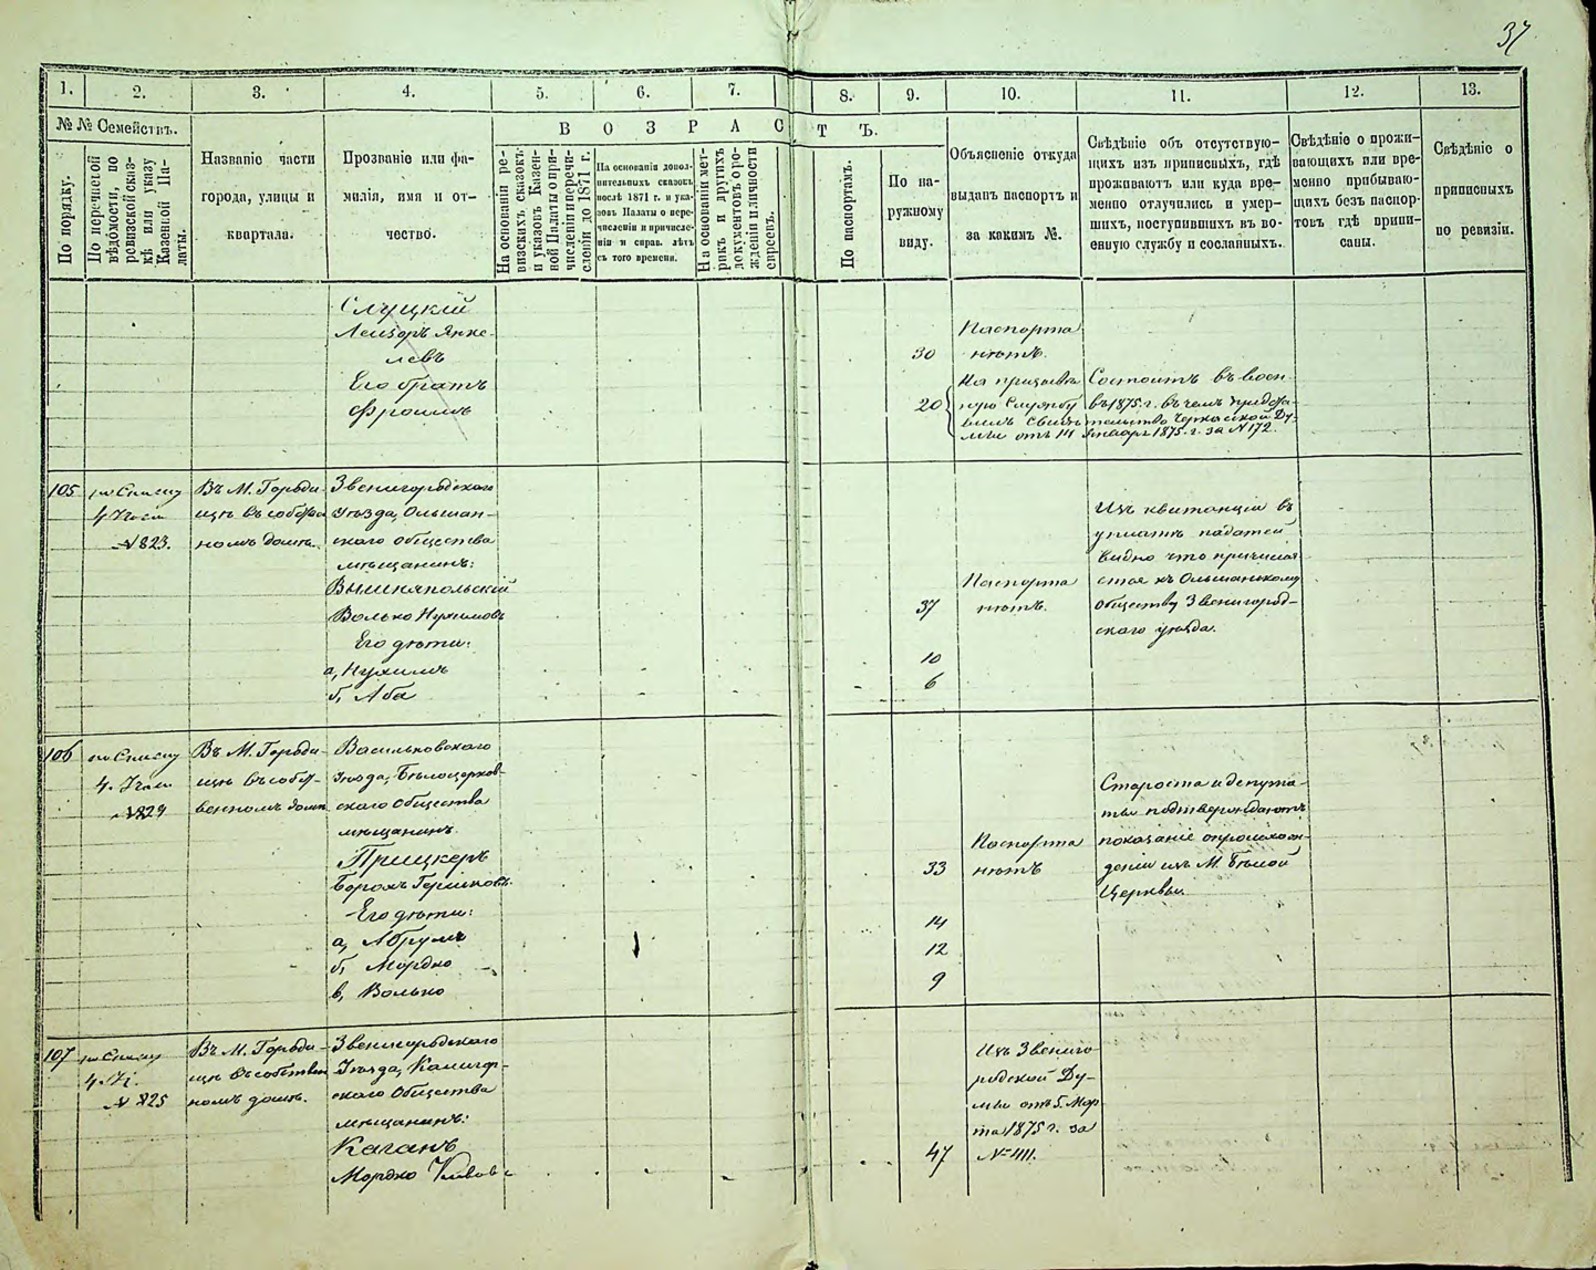 37
1. 2. 3. 4. 5. 6. 7. 8. 9. 10. 11. 12. 13.
№ № Семействъ.
По порядку.
По перечневой
вѣдомости, по
ревизской сказ-
кѣ или указу
Казенной Па-
латы.
Названіе части
города, улицы и
квартала.
Прозваніе или фа-
милія, имя и от-
чество.
В О З Р А С Т Ъ.
На основаніи ре-
визскихъ сказокъ
и указовъ Казен-
ной Палаты о при-
численіи и перечи-
сленіи до 1871 г.
На основаніи допол-
нительныхъ сказокъ
послѣ 1871 г. и ука-
зовъ Палаты о пере-
численіи и причисле-
ніи и справ. лѣтъ
съ того времени.
На основаніи мет-
рикъ и другихъ
документовъ о ро-
жденіи и личности
евреевъ.
По паспортамъ.
По на-
ружному
виду.
Объясненіе откуда
выданъ паспортъ и
за какимъ №.
Свѣдѣніе объ отсутствую-
щихъ изъ приписныхъ, гдѣ
проживаютъ или куда вре-
менно отлучились и умер-
шихъ, поступившихъ въ во-
енную службу и сосланныхъ.
Свѣдѣніе о прожи-
вающихъ или вре-
менно прибываю-
щихъ безъ паспор-
товъ гдѣ припи-
саны.
Свѣдѣніе о
приписныхъ
по ревизіи.
Слуцкій
Лейзоръ Янке-
левъ
Его братъ
Фроимъ
30
Паспорта
нѣтъ.
20
Состоитъ въ воен-
ную Службу въ 1875 г. въ чемъ
Свидѣтельство Черкасской Ду-
мы отъ 14 Января 1875 г. за N 172.
105
по Списку
4 Части
N 823.
Въ М. Городи-
щѣ въ собствен
номъ домѣ.
Звенигородскаго
уѣзда, Ольшан-
скаго общества
мѣщанинъ:
Вышкяпольскій
Волько Нухимовъ
Его дѣти:
а, Нухимъ
б, Аба
37
10
6
Паспорта
нѣтъ.
Изъ квитанціи въ
уплатѣ податей
видно что причисля
ется къ Ольшанскому
Обществу Звенигород-
скаго уѣзда.
106
по Списку
4. Части
N 824
Въ М. Городи-
щѣ въ собст-
венномъ домѣ
Васильковскаго
уѣзда, Бѣлоцерков-
скаго Общества
мѣщанинъ
Прицкеръ
Борохъ Гершковъ.
Его дѣти:
а, Абрумъ
б, Мордко
в, Волько
33
14
12
9
Паспорта
нѣтъ
Староста и депута-
ты подтверждаютъ
показаніе о происхож-
деніи изъ М. Бѣлой
Церкви.
107
по Списку
4. Ч.
N 825
Въ М. Городи-
щѣ въ собствен
номъ домѣ.
Звенигородскаго
Уѣзда, Калигор-
скаго Общества
мѣщанинъ:
Каганъ
Мордко
47
Изъ Звениго-
родской Ду-
мы отъ 5. Мар
та 1875 г. за
№ 411.